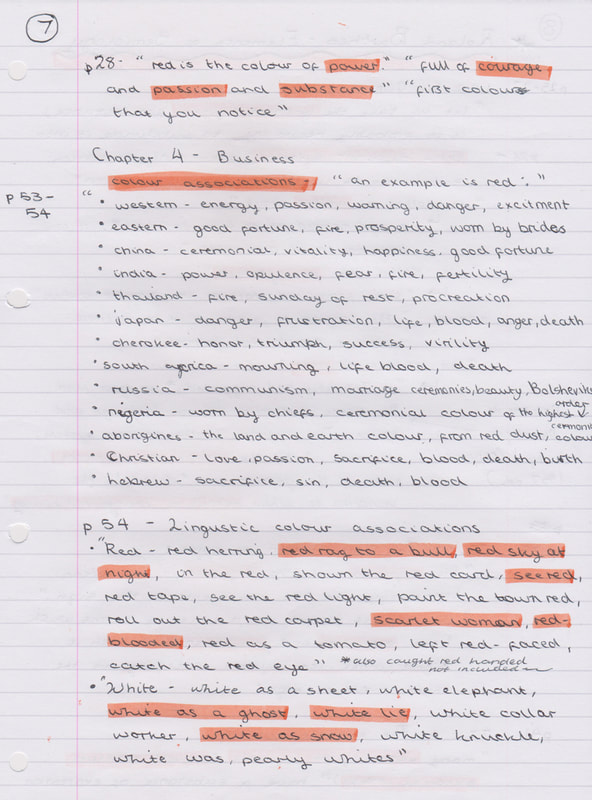 7
p28- "red is the colour of power." "full of courage,
and passion and substance" "first colour
that you notice"
Chapter 4 - Business
colour associations- "an example is red:"
p53-
54
" • western - energy, passion, warning, danger, excitment
• eastern - good fortune, fire, prosperity, worn by brides
• china - ceremonial, vitality, happiness, good fortune
• india - power, opulence, fear, fire, fertility
• thailand - fire, sunday of rest, procreation
• japan - danger, frustration, life, blood, anger, death
• cherokee - honor, triumph, success, virility
• south africa - mourning, life blood, death
• russia - communism, marriage ceremonies, beauty, Bolsheviks
• negeria - worn by chiefs, ceremonial colour of the highest order &
• aborigines - the land and earth colour, from red dust, cermonial colour
• Christian - love, passion, sacrifice, blood, death, birth
• hebrew - sacrifice, sin, death, blood
p 54 - Lingustic colour associations
• "Red - red herring, red rag to a bull, red sky at
night, in the red, shown the red card, see red,
red tape, see the red light, paint the town red,
roll out the red carpet, scarlet woman, red-
blooded, red as a tomato, left red-faced,
catch the red eye" * also caught red handed
not included
• "White - white as a sheet, white elephant,
white as a ghost, white lie, white collar
worker, white as snow, white knuckle,
white was, pearly whites"